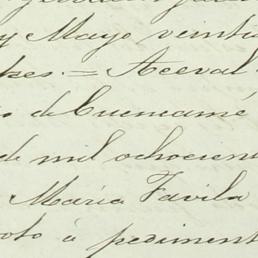 y Mayo veinti
tres. = Aceval
de Cuencamé
de mil ochocien
María Favila
á pediment